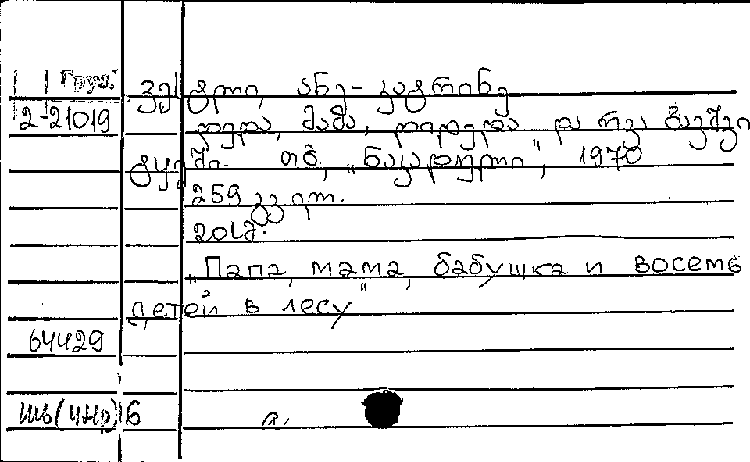 Груз.
2-21019
ვესტლი, ანე-კატრინე
დედა, მამა, დიდედა და რვა ბავშვი
ტყეში. თბ., „ნაკადული", 1970
259 გვ. ილ.
20 სმ.
„Папа, мама, бабушка и восемь
детей в лесу"
64429
Шв(4Нр)6